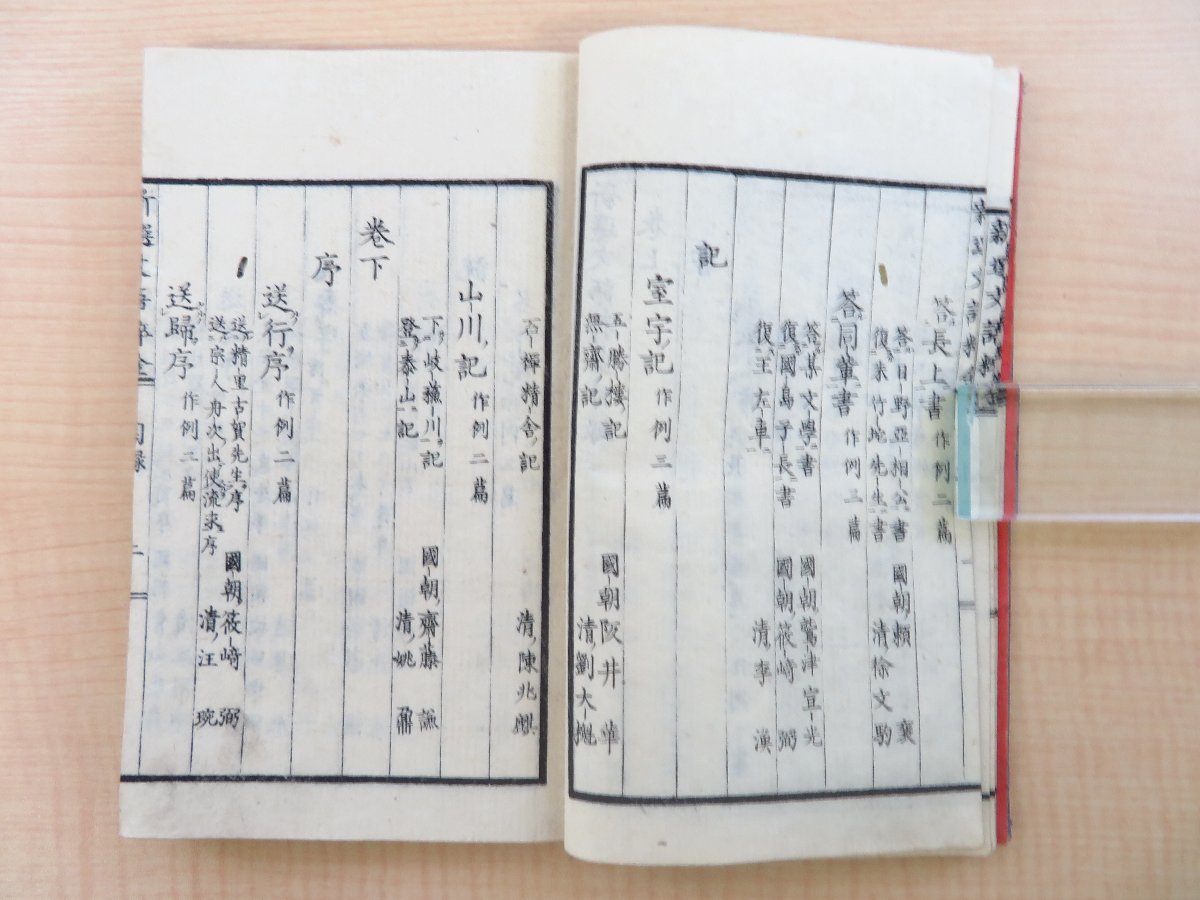 答長上書 作例二篇
答日野亞相公書 國朝 賴襄
復朱竹垞先生書 清 徐文駒
答同輩書 作例三篇
答某文學書 國朝 鷲津宣光
復國島子長書 國朝 篠崎弼
復王左車 清 李漁
記
室宇記 作例三篇
五勝樓記 國朝 阪井華
無齋記 清 劉大櫆
石禪精舍記 清 陳兆麒
山川記 作例二篇
下岐蘇川記 國朝 齋藤謙
登泰山記 清 姚鼐
卷下
序
送行序 作例二篇
送精里古賀先生序 國朝 篠崎弼
送宗人舟次出使流求序 清 汪琬
送歸序 作例二篇
目錄